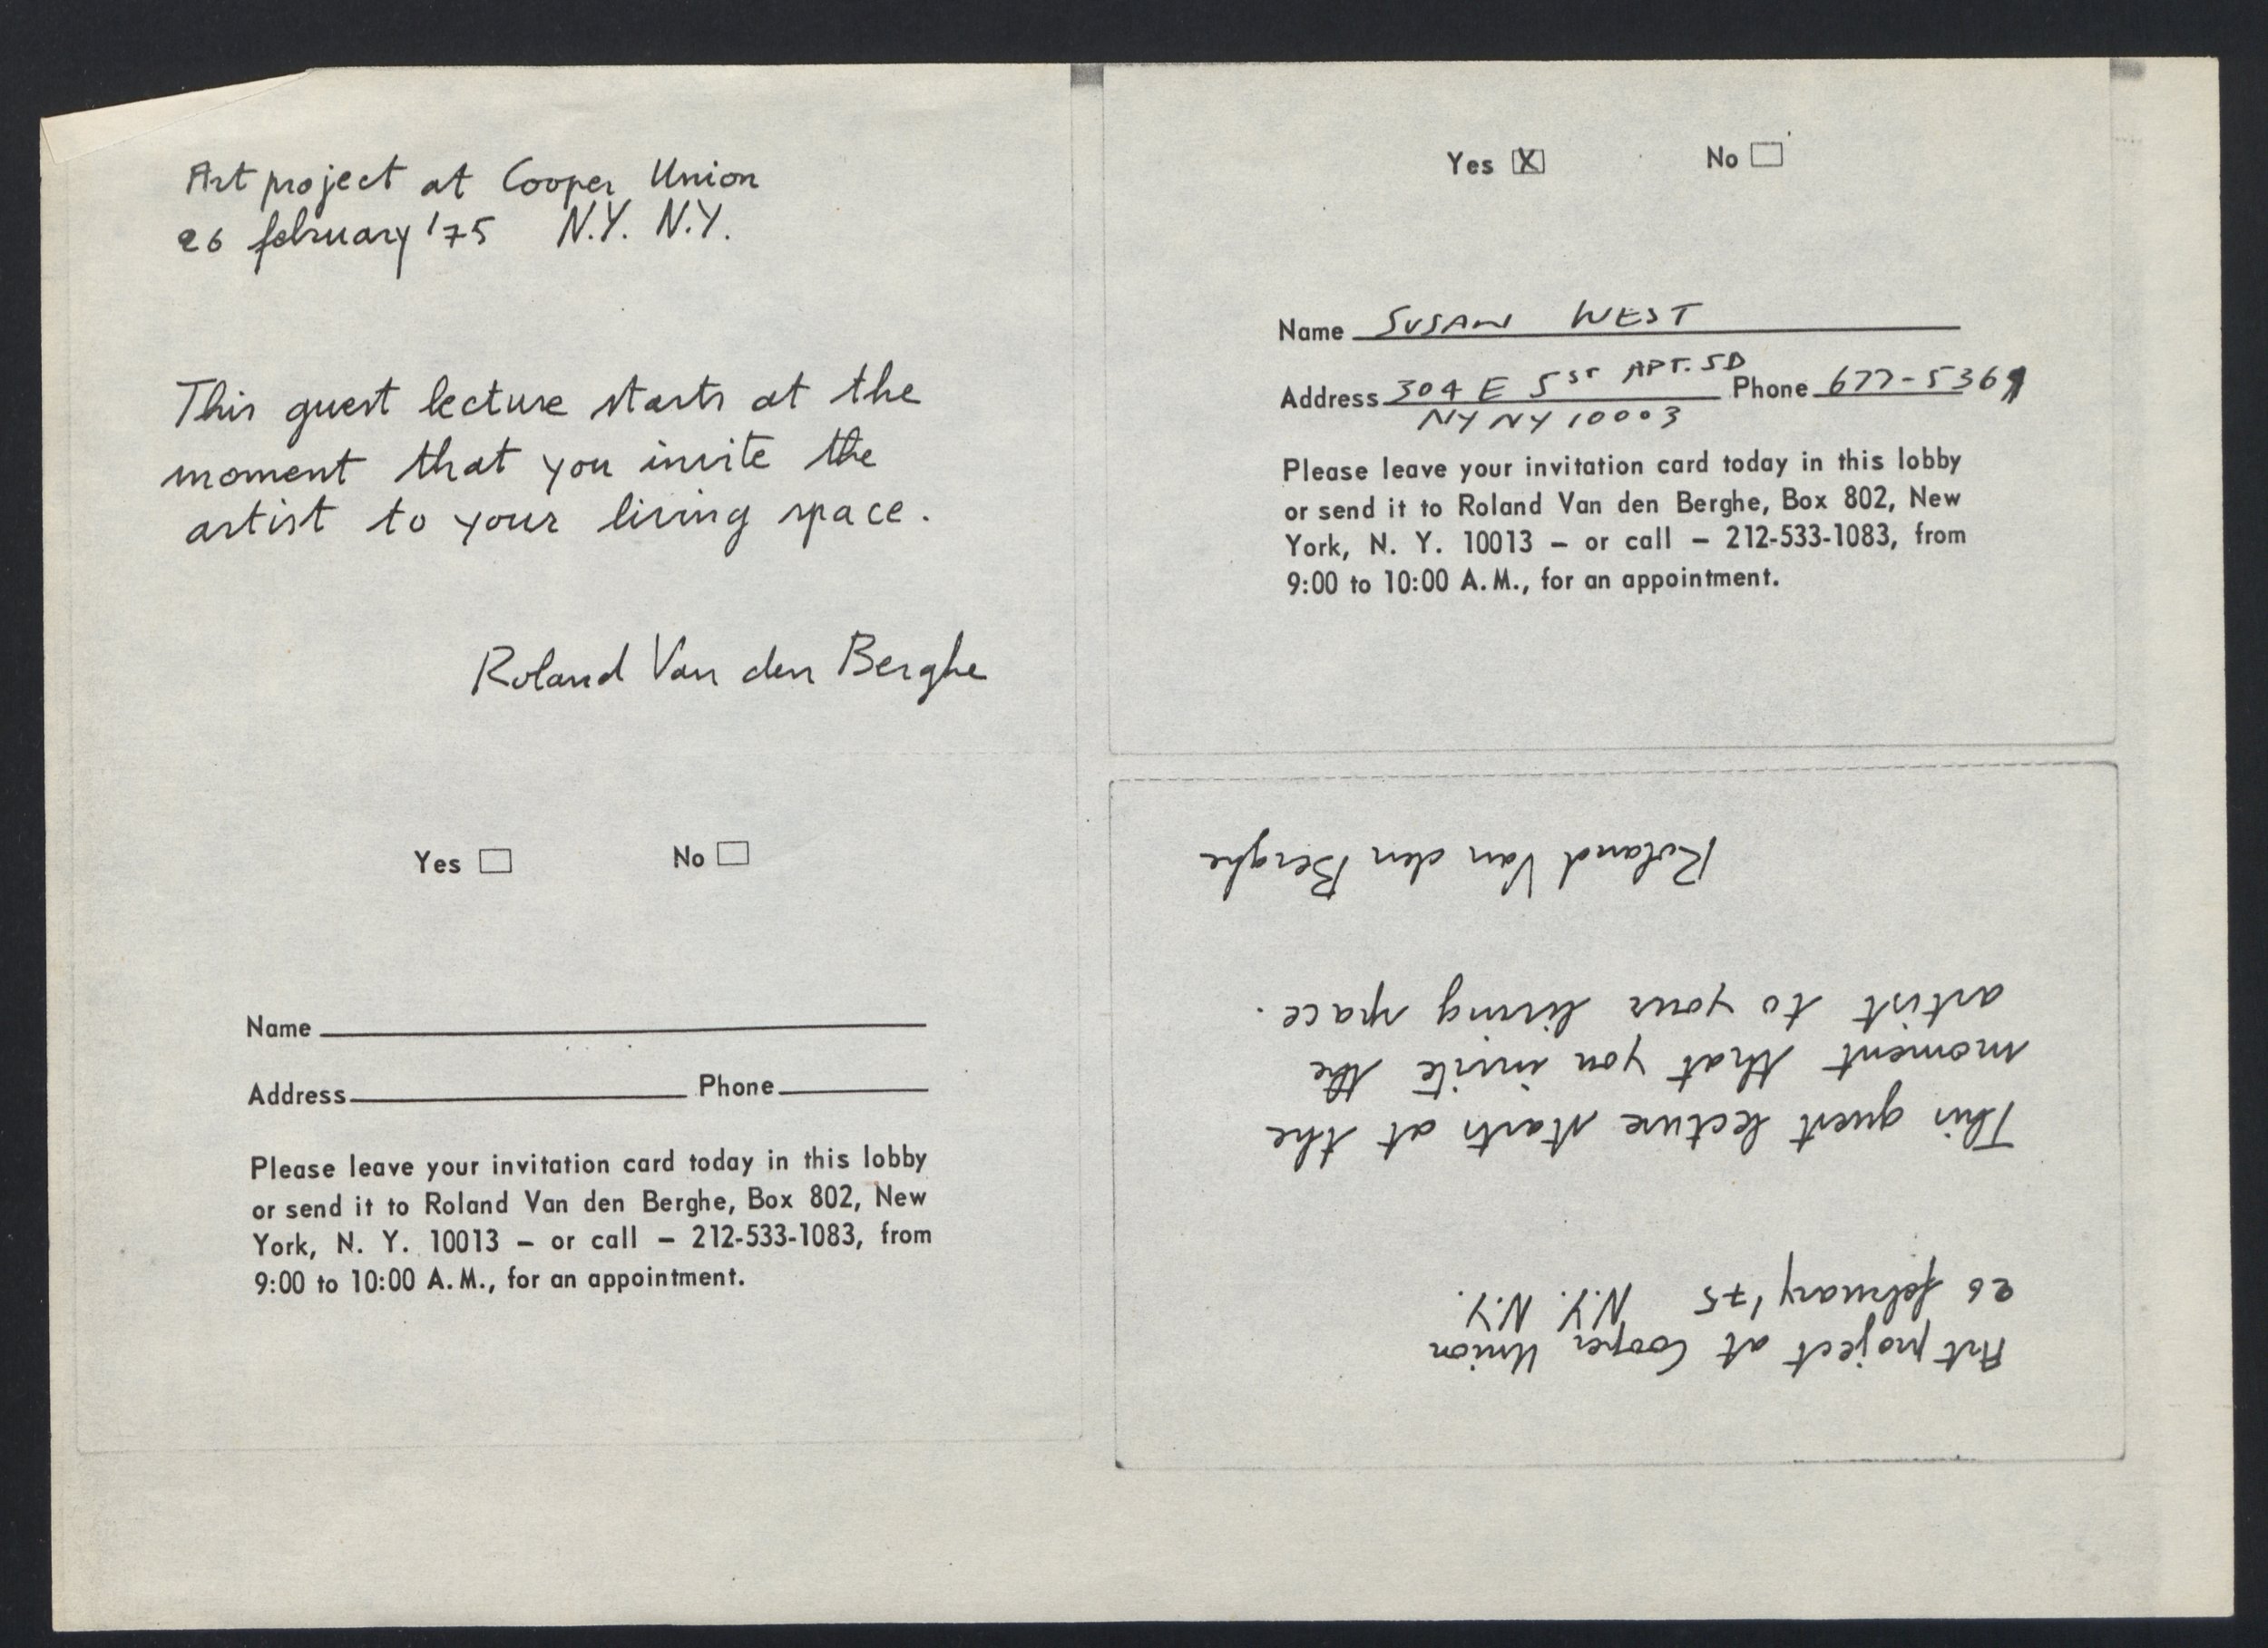 Art project at Cooper Union
26 february '75 N.Y. N.Y.
This guest lecture starts at the
moment that you invite the
artist to your living space.
Roland Van den Berghe
Yes No
Name
Address Phone
Please leave your invitation card today in this lobby
or send it to Roland Van den Berghe, Box 802, New
York, N. Y. 10013 – or call – 212-533-1083, from
9:00 to 10:00 A.M., for an appointment.
Yes X No
Name SUSAN WEST
Address 304 E 5 ST APT. 5D Phone 677-5369
NY NY 10003
Please leave your invitation card today in this lobby
or send it to Roland Van den Berghe, Box 802, New
York, N. Y. 10013 – or call – 212-533-1083, from
9:00 to 10:00 A.M., for an appointment.
Art project at Cooper Union
26 february '75 N.Y. N.Y.
This guest lecture starts at the
moment that you invite the
artist to your living space.
Roland Van den Berghe